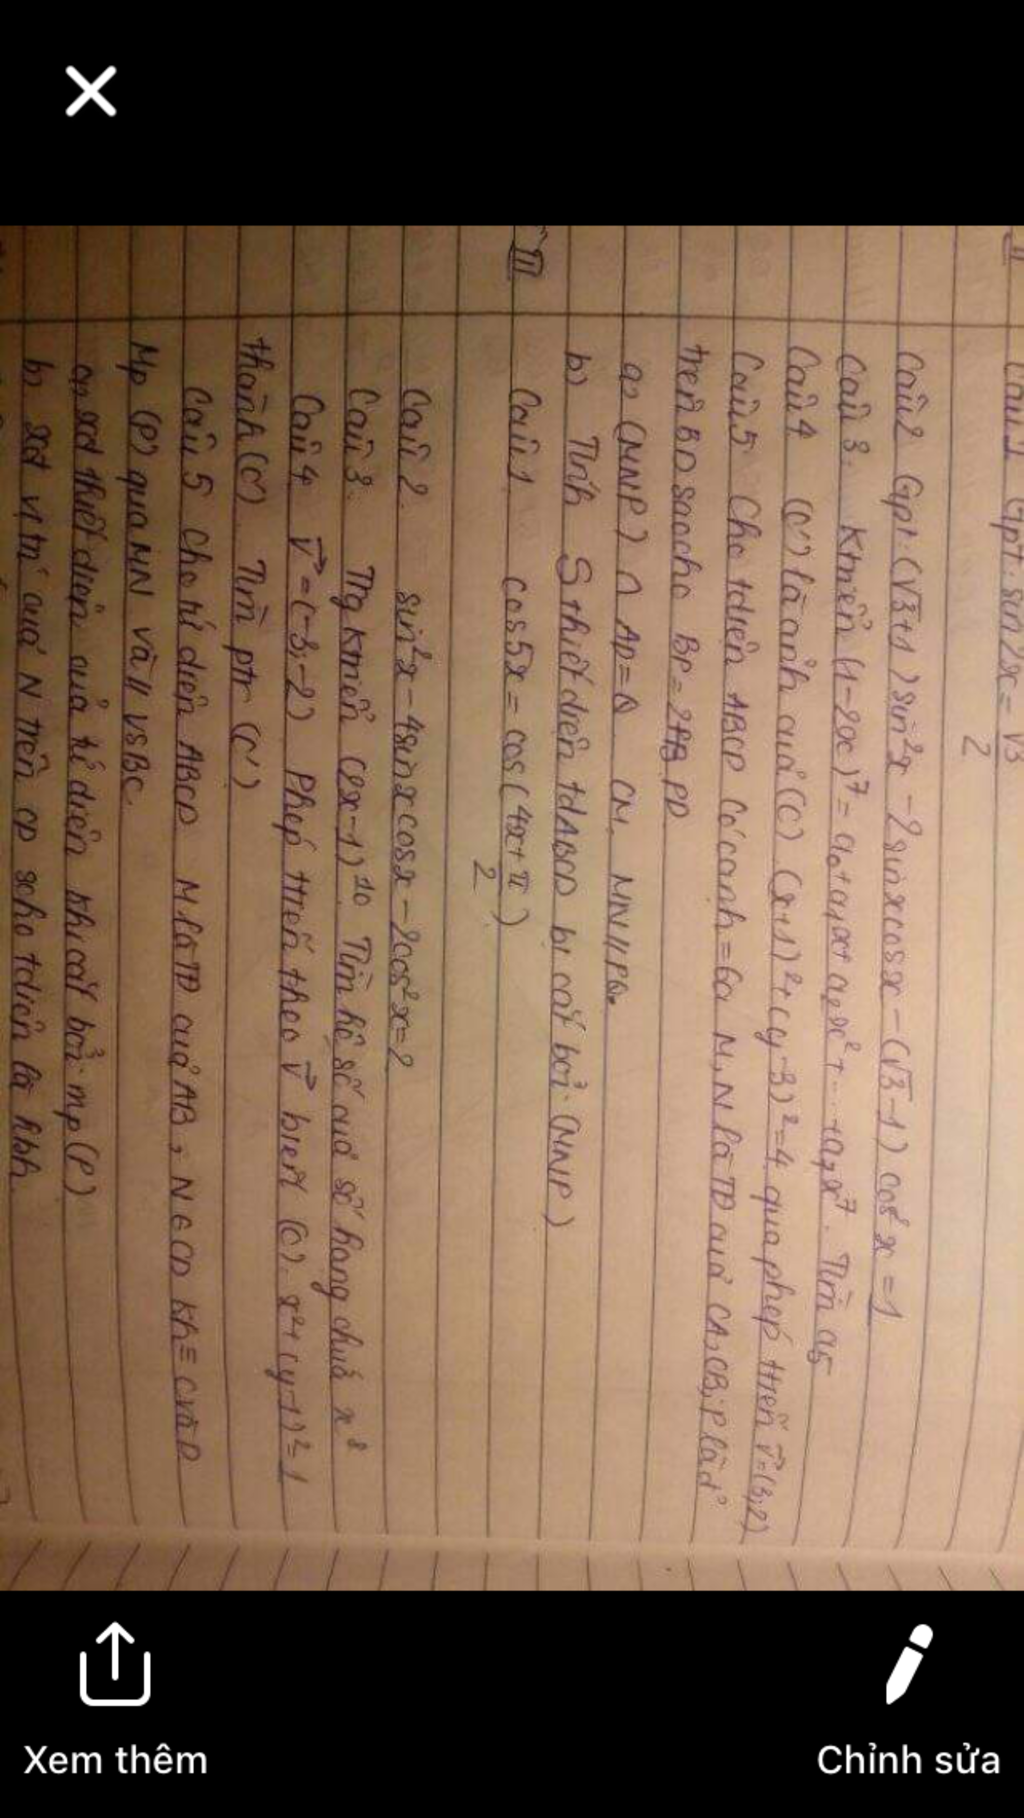 II Câu 1 Gpt: sin2x = √3/2
Câu 2 Gpt: (√3+1) sin²x - 2sinxcosx - (√3-1) cos²x = 1
Câu 3. Ktriển (1-2x)⁷ = a₀ + a₁x + a₂x² + ... + a₇x⁷. Tìm a₅
Câu 4 (C') là ảnh của (C) (x+1)² + (y-3)² = 4 qua phép ttiến v⃗=(3;2)
Câu 5 Cho tdiện ABCD có cạnh = 6a M, N là TĐ của CA, CB, P là đ'
trên BD sao cho BP = 2 PD
a, (MNP) ∩ AD = Q CM. MN // PQ.
b) Tính S thiết diện tdABCD bị cắt bởi (MNP)
III Câu 1 cos5x = cos(4x + π/2)
Câu 2. sin²x - 4sinxcosx - 2cos²x = 2
Câu 3. Tlg Ktriển (2x-1)¹⁰. Tìm hệ số của số hạng chứa x⁸
Câu 4 v⃗ = (-3;-2) Phép ttiến theo v⃗ biến (C). x² + (y-1)² = 1
thành (C'). Tìm ptr (C')
Câu 5 Cho tứ diện ABCD M là TĐ của AB, N ∈ CD Kh ≡ C và D
Mp (P) qua MN và // vs BC
a, xđ thiết diện của tứ diện khi cắt bởi mp (P)
b, xđ vtrí của N trên CD scho tdiện là hbh
Xem thêm
Chỉnh sửa